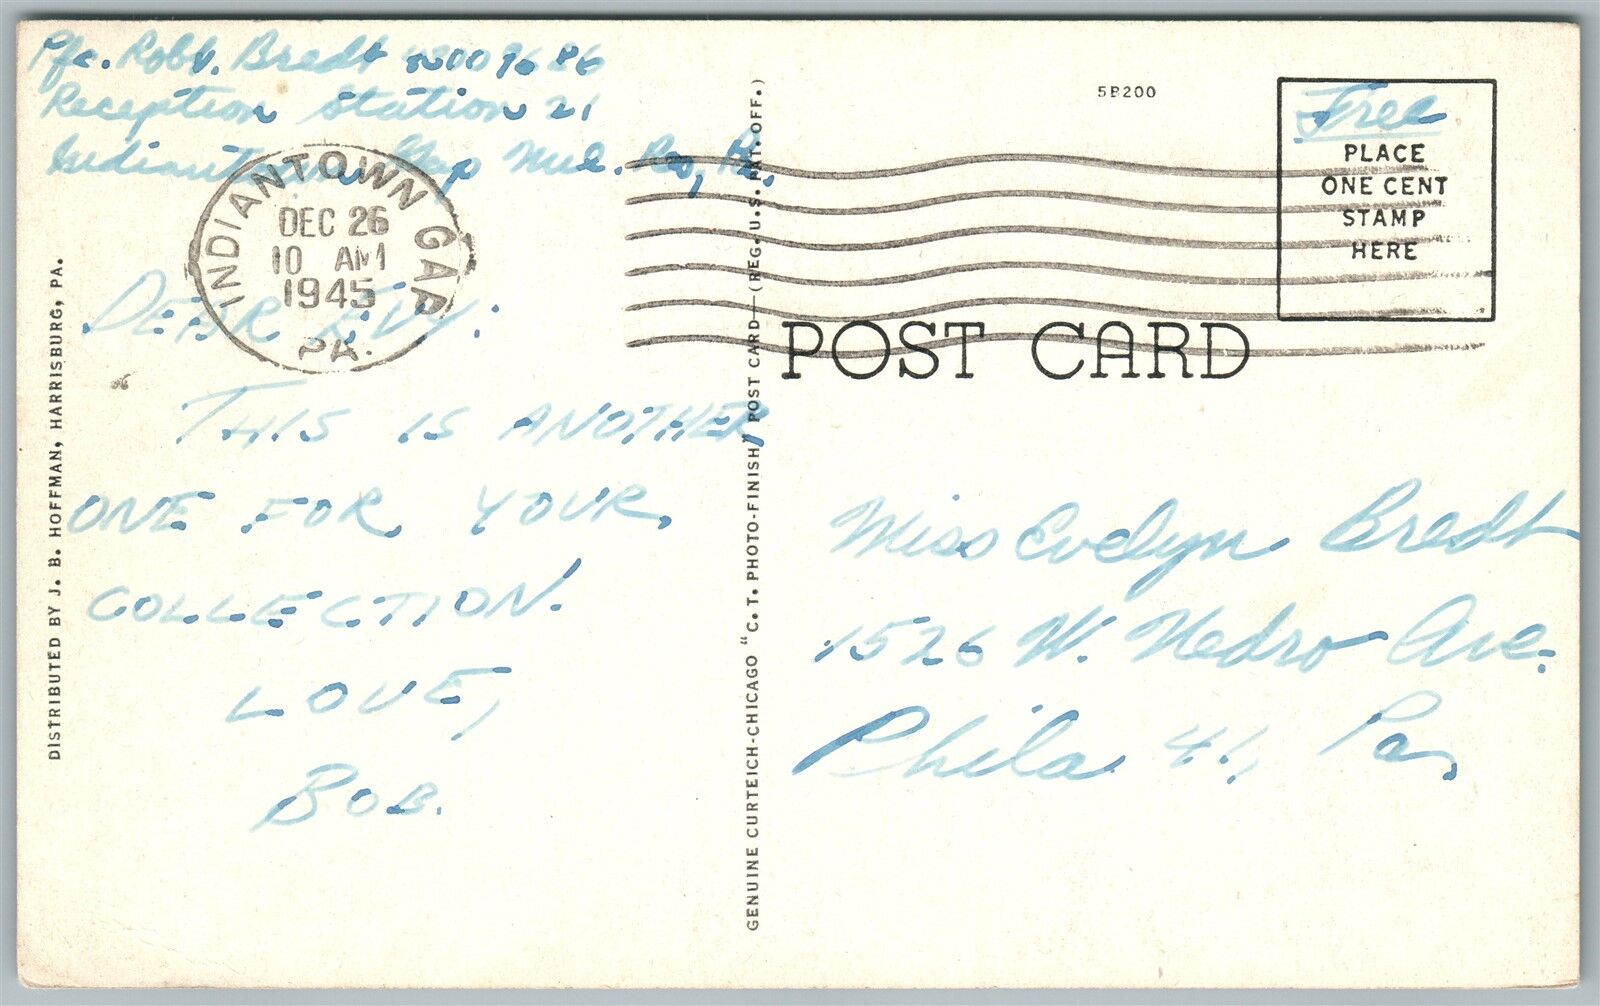 Pfc. Robt. Bredt
Reception Station 21
Indiantown Gap Mil. Res, Pa.
INDIANTOWN GAP
DEC 26
10 AM
1945
PA.
DEAR EVY:
THIS IS ANOTHER
ONE FOR YOUR
COLLECTION.
LOVE,
BOB.
DISTRIBUTED BY J. B. HOFFMAN, HARRISBURG, PA.
GENUINE CURTEICH-CHICAGO "C. T. PHOTO-FINISH" POST CARD—(REG. U.S. PAT. OFF.)
5B200
Free
PLACE
ONE CENT
STAMP
HERE
POST CARD
Miss Evelyn Bredt
1526 W. Nedro Ave.
Phila 41, Pa.